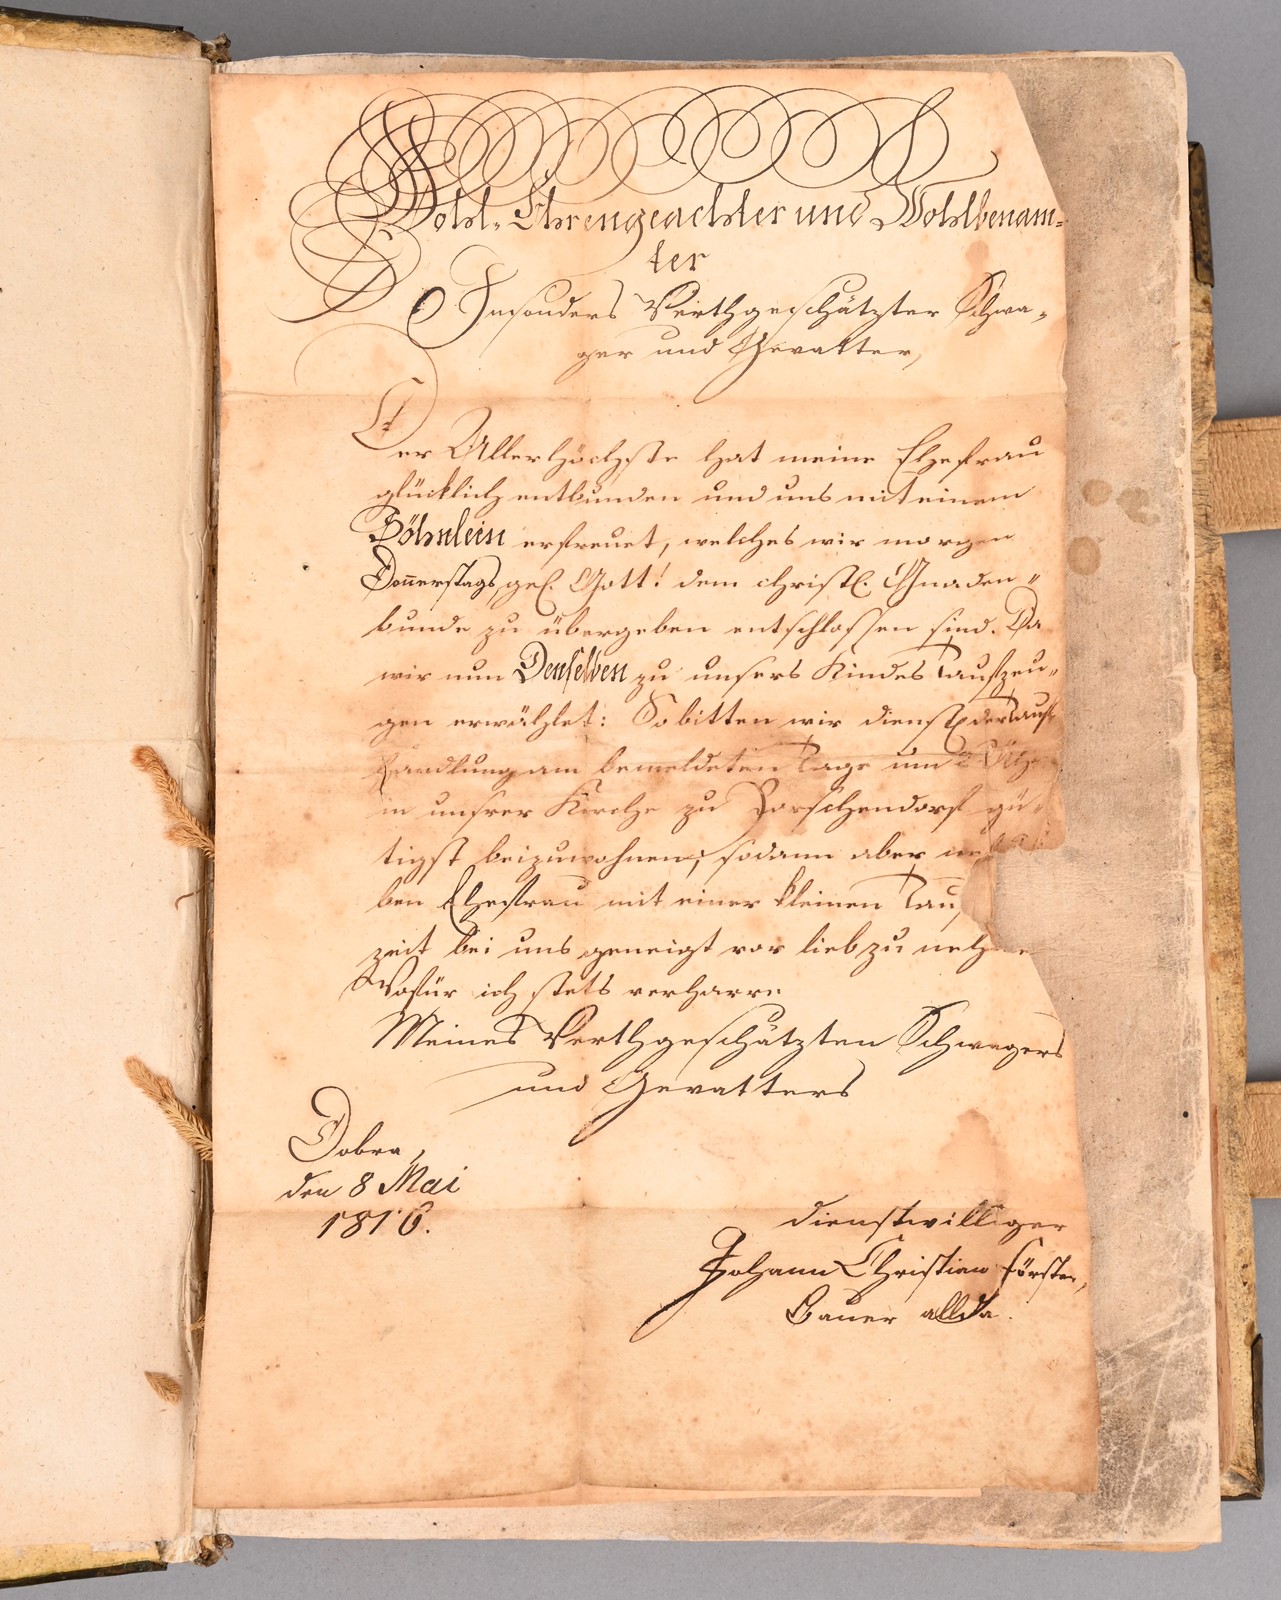 Wohl-Ehrengeachter und Wohlbenam-
ter
Insonders Werthgeschätzter Schwa-
ger und Gevatter,
Der Allerhöchste hat meine Ehefrau
glücklich entbunden und uns mit einem
Söhnlein erfreuet, welches wir morgen
Donnerstags, gel. Gott! dem christl. Gnaden-
bunde zu übergeben entschlossen sind. Da
wir nun Denselben zu unsers Kindes Taufzeu-
gen erwählet: So bitten wir dienstl. der Tauf-
handlung am bemeldeten Tage um 2 Uhr
in unsrer Kirche zu Porschendorf gü-
tigst beizuwohnen; sodann aber
ben Ehefrau mit einer kleinen
zeit bei uns geneigt vor lieb zu
Wofür ich stets verharre
Meines Werthgeschätzten Schwagers
und Gevatters
Dobra,
den 8 Mai
1816.
dienstwilliger
Johann Christian Förster,
Bauer allda.